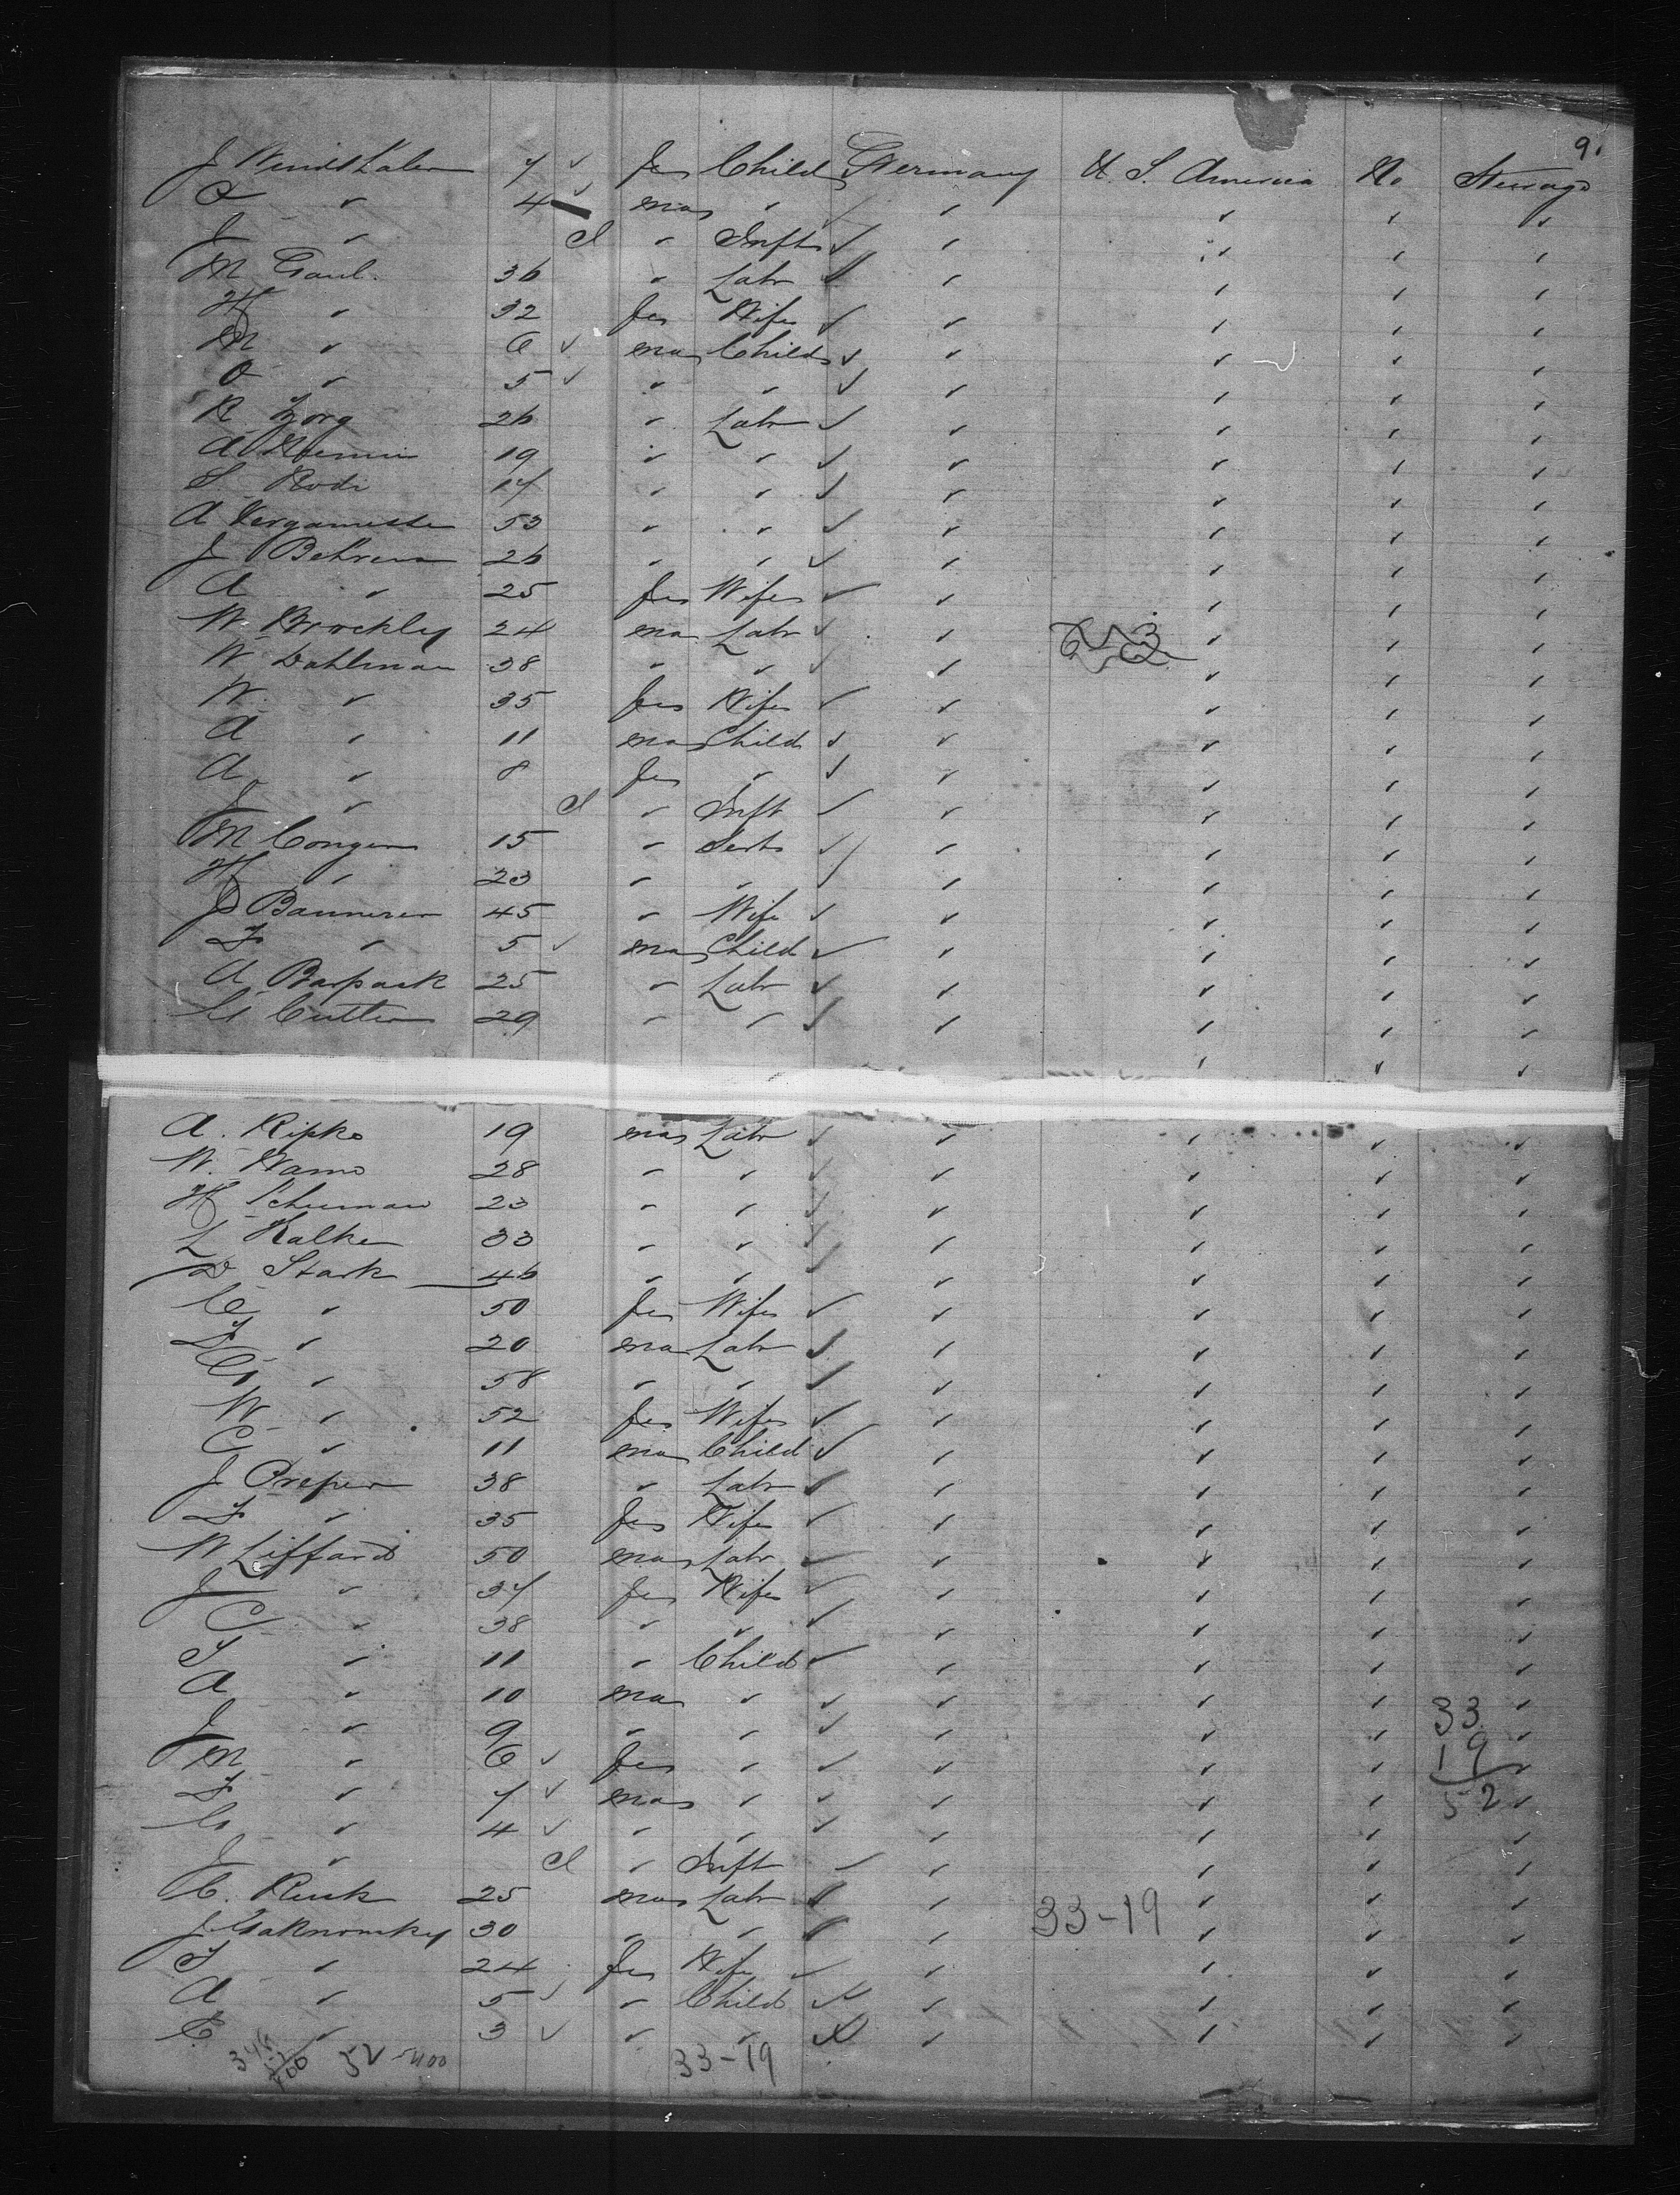 9.
J Windthaler 7 ✓ Fe Child Germany U. S. America No Steerage
4 ✓ Ma " ✓ " " " "
J " I " Inft ✓ " " " "
M Gaul 36 " Labr ✓ " " " "
H " 32 Fe Wife ✓ " " " "
M " 6 ✓ Ma Child ✓ " " " "
O " 5 ✓ " " ✓ " " " "
R Zorg 26 " Labr ✓ " " " "
A 19 " " ✓ " " " "
S Rodi 17 " " ✓ " " " "
A 53 " " ✓ " " " "
J Behrens 26 " " ✓ " " " "
A " 25 Fe Wife ✓ " " " "
W. Brockley 24 Ma Labr ✓ " " " "
W Dahlman 38 " " ✓ " " " "
W " 35 Fe Wife ✓ " " " "
A " 11 Ma Child ✓ " " " "
A " 8 Fe " ✓ " " " "
J " I " Inft ✓ " " " "
M Congen 15 " Servt ✓ " " " "
H " 23 " " ✓ " " " "
D Bannerer 45 " Wife ✓ " " " "
F " 5 ✓ Ma Child ✓ " " " "
A Barpack 25 " Labr ✓ " " " "
G Cutter 29 " " ✓ " " " "
" " "
A. Ripke 19 Ma Labr ✓ " " " "
W. 28 " " ✓ " " " "
H Schuman 23 " " ✓ " " " "
L Kalke 33 " " ✓ " " " "
D Stark 46 " " ✓ " " " "
C " 50 Fe Wife ✓ " " " "
F " 20 Ma Labr ✓ " " " "
G " 58 " " ✓ " " " "
W " 52 Fe Wife ✓ " " " "
C " 11 Ma Child ✓ " " " "
J Preper 38 " Labr ✓ " " " "
F " 35 Fe Wife ✓ " " " "
W Liffard 50 Ma Labr ✓ " " " "
J " 37 Fe Wife ✓ " " " "
C " 38 " " ✓ " " " "
S " 11 " Child ✓ " " " "
A " 10 Ma " ✓ " " " "
J " 9 " " ✓ " " " " 33
M " 6 ✓ Fe " ✓ " " " " 19
F " 7 ✓ Ma " ✓ " " " " 52
G " 4 ✓ " " ✓ " " " "
J " I " Inft ✓ " " " "
C. Rusk 25 Ma Labr ✓ " 33-19 " " "
J 30 " " ✓ " " " "
S " 24 Fe Wife ✓ " " " "
A " 5 ✓ " Child ✓ " " " "
C " 3 ✓ " " ✓ " " " "
52 33-19